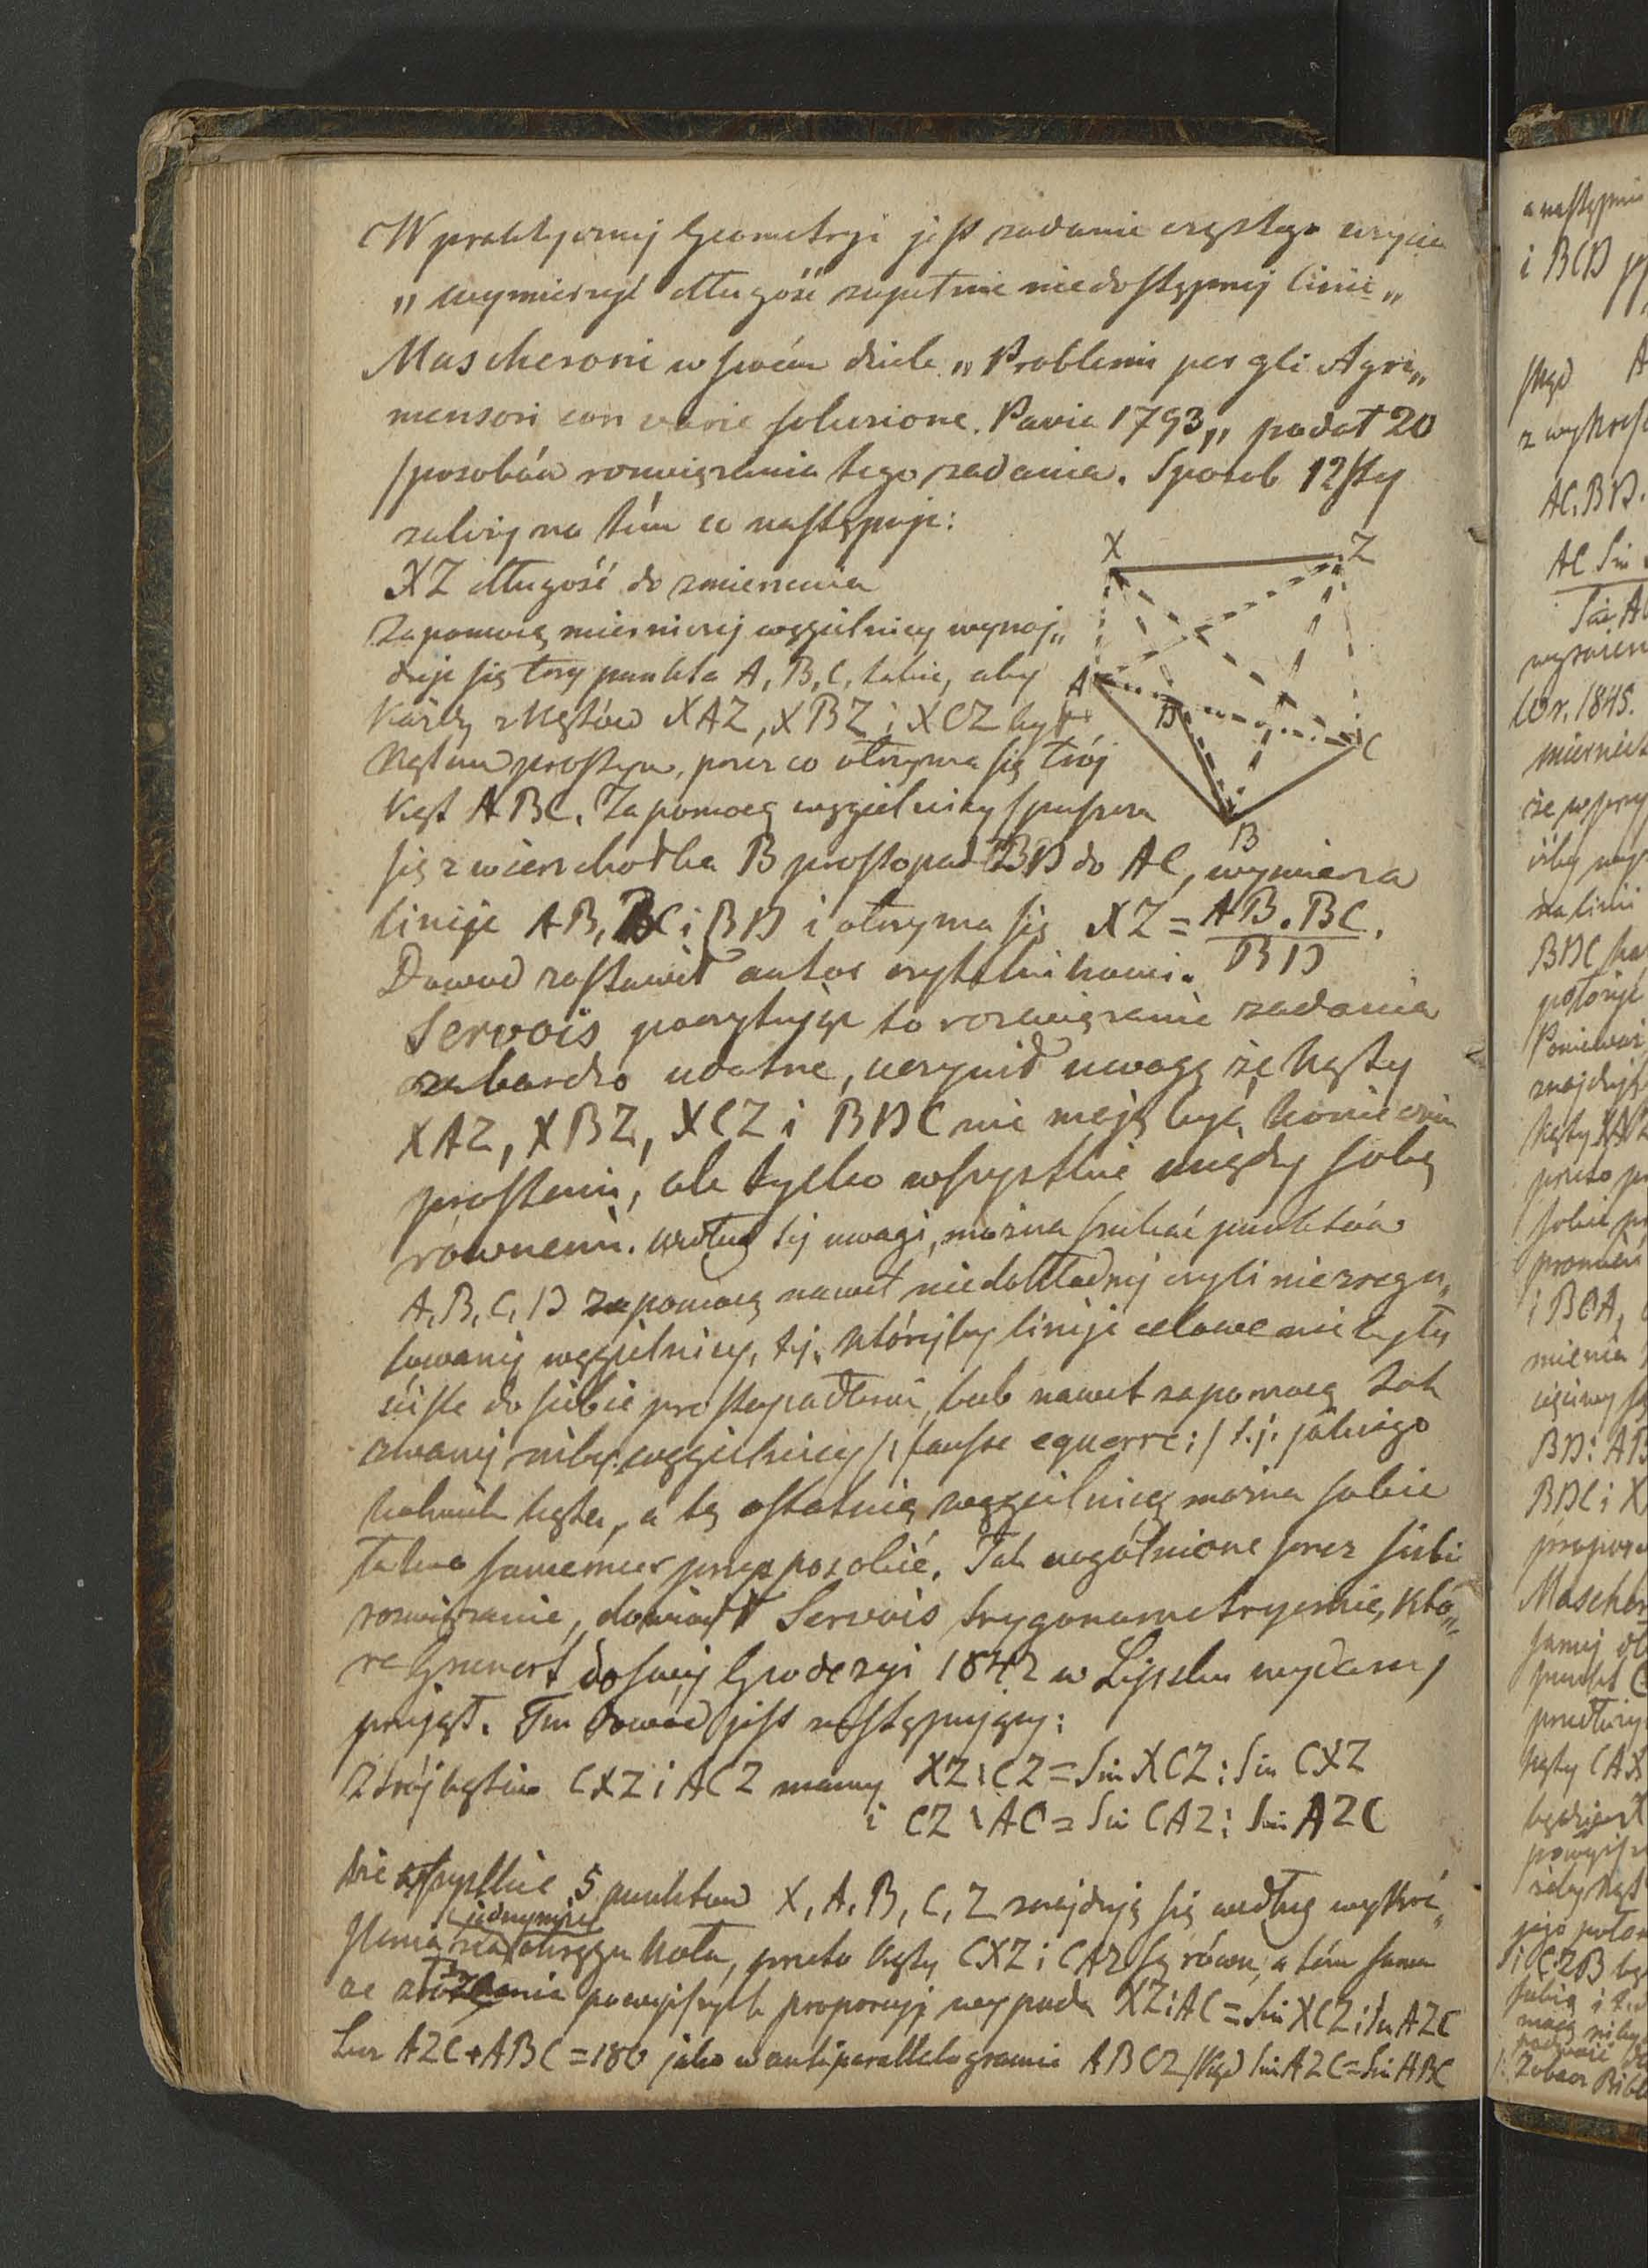 W praktycznej Geometryi jest zadanie częstego użycia
„ wymierzyć długość zupełnie niedostępnej linii „
Mascheroni w swém dziele „ Problemi per gli Agri„
mensori con varie soluzione. Pavia 1793 „ podał 20
sposobów rozwiązania tego zadania. Sposob 12sty
zależy na tém co następuje:
XZ długość do zmierzenia
Za pomocą mierniczej węgielnicy wynaj„
duje się trzy punkta A, B, C, takie, aby
każdy z kątów XAZ, XBZ i XCZ był
kątem prostym, przez co otrzyma się trój
kąt ABC. Za pomocą węgielnicy spuszcza
się z wierzchołka B prostopad BD do AC, wymierza
linije AB, BC i BD i otrzyma się XZ = AB . BC / BD .
Dowod zostawił autor czytelnikowi.
Servois poczytując to rozwiązanie zadania
za bardzo udatne, uczynił uwagę że kąty
XAZ, XBZ, XCZ i BDC nie mają być koniecznie
prostemi, ale tylko wszystkie między sobą
równemi. Według tej uwagi, można szukać punktów
A, B, C, D za pomocą nawet niedokładnej czyli niezregu„
lowanej węgielnicy, t.j. którejby linije celowe nie były
ściśle do siebie prostopadłemi, lub nawet za pomocą tak
zwanej niby-węgielnicy /: fausse equerre :/ t.j. jakiego
kolwiek kąta, a tę ostatnią węgielnicę można sobie
łatwo samemu przysposobić. Tak uogólnione przez siebie
rozwiązanie, dowiódł Servois trygonometrycznie, któ„
re Grunert do swej Geodezyi 1842 w Lipsku wydanej
przyjął. Ten dowód jest następujący:
Z trójkątów CXZ i ACZ mamy XZ : CZ = Sin XCZ : Sin CXZ
i CZ : AC = Sin CAZ : Sin AZC
że wszystkie 5 punktów X, A, B, C, Z znajdują się według wykré„
ślenia na jednymże okręgu koła, przeto kąty CXZ i CAZ są równe, a tém samem
ze złożenia powyższych proporcyj wypada XZ : AC = Sin XCZ : Sin AZC
Lecz AZC + ABC = 180 jako w antiparallelogramie ABCZ, skąd Sin AZC = Sin ABC
X
Z
A
D
C
B
a następnie
i BCD
skąd
AC.BD.
AC Sin
1845.
BDC
Ponieważ
przeto
i BCA,
BD : AB
BDC i X
Mascher
punkt C
kąty CAX
i CZB